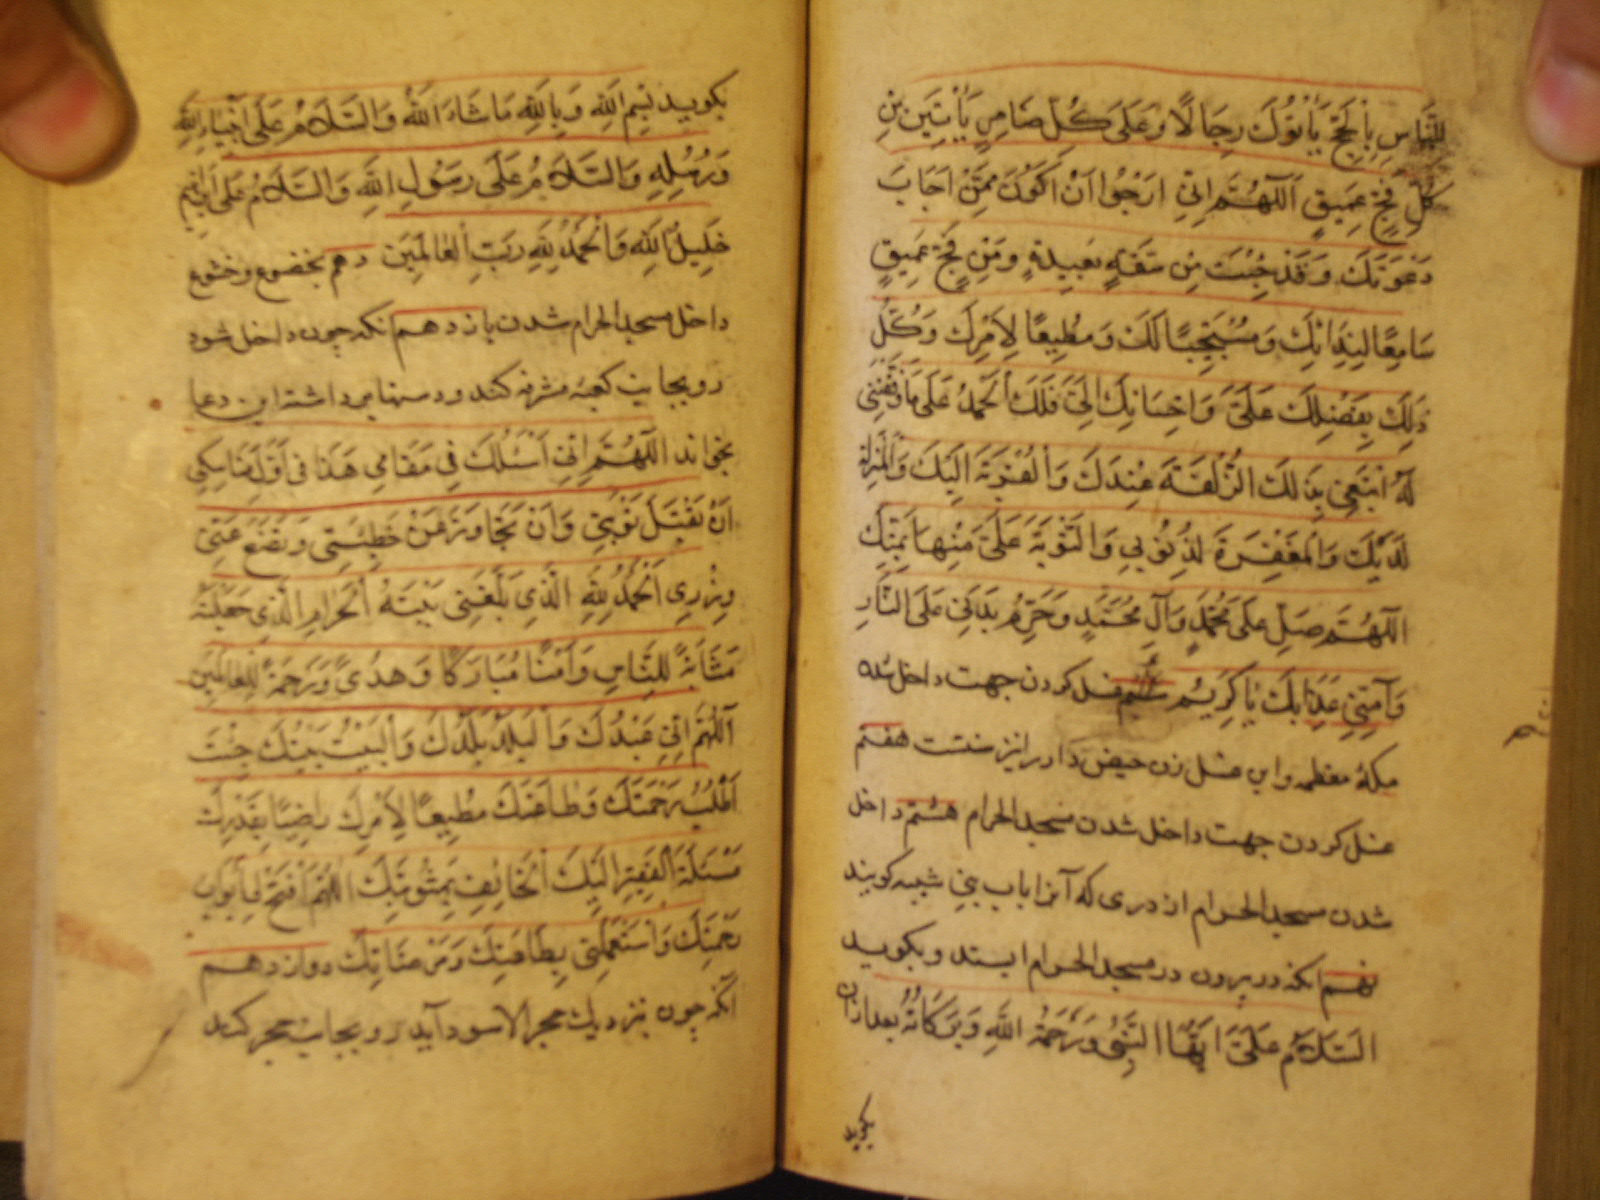 لِلنَّاسِ بِالْحَجِّ يَأْتُوكَ رِجَالًا وَعَلَى كُلِّ ضَامِرٍ يَأْتِينَ مِن
كُلِّ فَجٍّ عَمِيقٍ اَللّهُمَّ اِنِّي اَرْجُوا اَنْ اَكُونَ مِمَّنْ اَجَابَ
دَعْوَتَكَ وَقَدْ جِئْتُ مِن شُقَّةٍ بَعِيدَةٍ وَمِن فَجٍّ عَمِيقٍ
سَامِعًا لِنِدَائِكَ وَمُسْتَجِيبًا لَكَ وَمُطِيعًا لِاَمْرِكَ وَكُلُّ
ذلِكَ بِفَضْلِكَ عَلَيَّ وَاِحْسَانِكَ اِلَيَّ فَلَكَ الْحَمْدُ عَلَى مَا وَفَّقْتَنِي
لَهُ اَبْتَغِي بِذلِكَ الزُّلْفَةَ عِنْدَكَ وَالْقُرْبَةَ اِلَيْكَ وَالْمَنْزِلَةَ
لَدَيْكَ وَالْمَغْفِرَةَ لِذُنُوبِي وَالتَّوْبَةَ عَلَيَّ مِنْهَا بِمَنِّكَ
اَللّهُمَّ صَلِّ عَلَى مُحَمَّدٍ وَآلِ مُحَمَّدٍ وَحَرِّمْ بَدَنِي عَلَى النَّارِ
وَآمِنِّي عَذَابَكَ يَا كَرِيمُ ششم غسل کردن جهت داخل شدن
مکهٔ معظمه واین غسل زن حیض دار را نیز سنتست هفتم
غسل کردن جهت داخل شدن مسجد الحرام هشتم داخل
شدن مسجد الحرام از دری که آنرا باب بنی شیبه کویند
نهم انکه در بیرون در مسجد الحرام ایستد وبکوید
اَلسَّلَامُ عَلَيْكَ اَيُّهَا النَّبِيُّ وَرَحْمَةُ اللَّهِ وَبَرَكَاتُهُ بعد ازان
بکوید
بکوید بِسْمِ اللهِ وَبِاللهِ مَا شَاءَ اللهُ وَالسَّلَامُ عَلَى اَنْبِيَاءِ اللهِ
وَرُسُلِهِ وَالسَّلَامُ عَلَى رَسُولِ اللهِ وَالسَّلَامُ عَلَى اِبْرَاهِيمَ
خَلِيلِ اللهِ وَالْحَمْدُ لِلّهِ رَبِّ الْعَالَمِينَ دهم بخضوع وخشوع
داخل مسجد الحرام شدن یازدهم انکه چون داخل شود
رو بجانب کعبه مشرفه کند ودستها برداشته این دعا
بخواند اَللّهُمَّ اِنِّي اَسْئَلُكَ فِي مَقَامِي هَذَا فِي اَوَّلِ مَنَاسِكِي
اَنْ تَقْبَلَ تَوْبَتِي وَاَنْ تَجَاوَزَ عَنْ خَطِيئَتِي وَتَضَعَ عَنِّي
وِزْرِي اَلْحَمْدُ لِلّهِ الَّذِي بَلَّغَنِي بَيْتَهُ الْحَرَامِ الَّذِي جَعَلْتَهُ
مَثَابَةً لِلنَّاسِ وَاَمْنًا مُبَارَكًا وَهُدًى وَرَحْمَةً لِلْعَالَمِينَ
اَللّهُمَّ اِنِّي عَبْدُكَ وَالْبَلَدُ بَلَدُكَ وَالْبَيْتُ بَيْتُكَ جِئْتُ
اَطْلُبُ رَحْمَتَكَ وَطَاعَتَكَ مُطِيعًا لِاَمْرِكَ رَاضِيًا بِقَدَرِكَ
مَسْئَلَةَ الْفَقِيرِ اِلَيْكَ الْخَائِفِ بِعُقُوبَتِكَ اَللّهُمَّ افْتَحْ لِي اَبْوَابَ
رَحْمَتِكَ وَاسْتَعْمِلْنِي بِطَاعَتِكَ وَمَرْضَاتِكَ دوازدهم
آنکه چون نزدیك حجر الاسود آید رو بجانب حجر کند